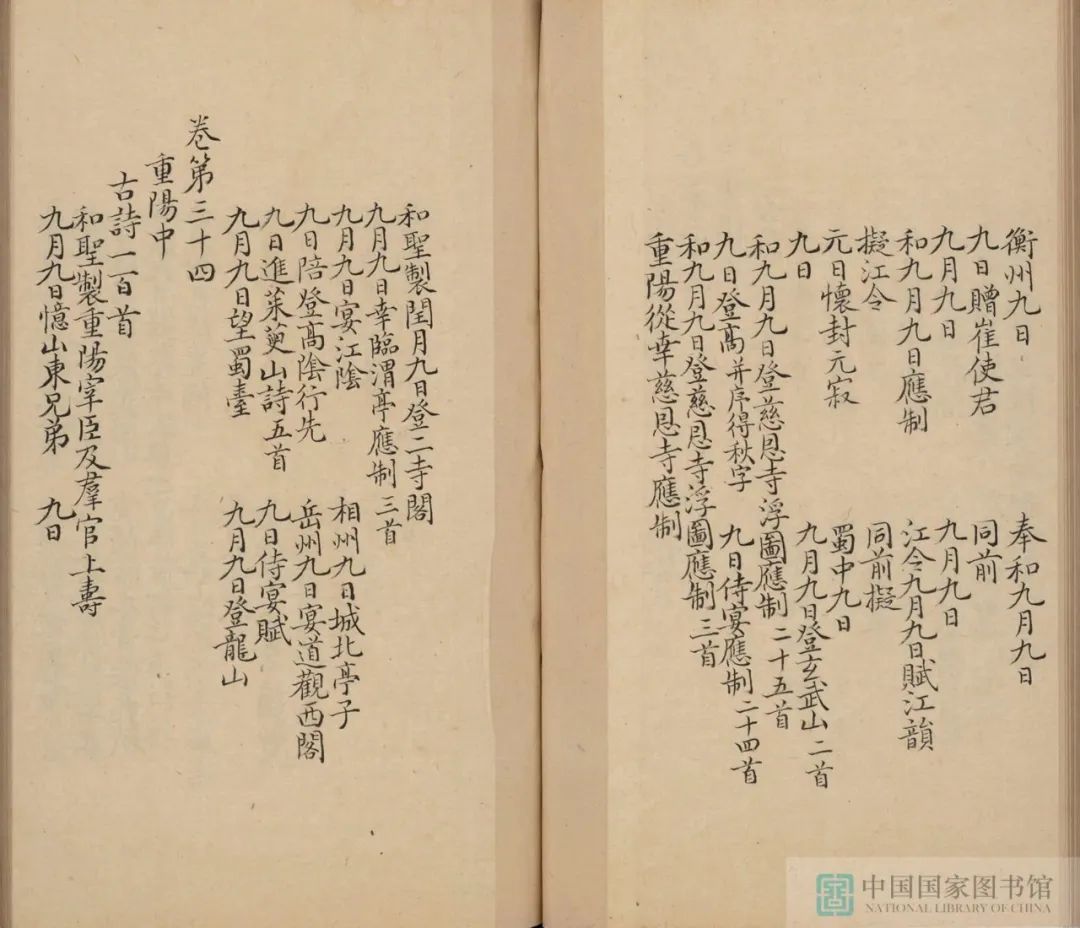 衡州九日 奉和九月九日
九日贈崔使君 同前
九月九日 九月九日
和九月九日應制 江令九月九日賦江韻
擬江令 同前擬
元日懷封元寂 蜀中九日
九日 九月九日登玄武山二首
和九月九日登慈恩寺浮圖應制二十五首
九日登高并序得秋字 九日侍宴應制二十四首
和九月九日登慈恩寺浮圖應制三首
重陽從幸慈恩寺應制
和聖製閏月九日登二寺閣
九月九日幸臨渭亭應制三首
九月九日宴江陰 相州九日城北亭子
九日陪登高陰行先 岳州九日宴道觀西閣
九日進茱萸山詩五首 九日侍宴賦
九月九日望蜀臺 九月九日登龍山
卷第三十四
重陽中
古詩一百首
和聖製重陽宰臣及羣官上壽
九月九日憶山東兄弟 九日
中国国家图书馆
NATIONAL LIBRARY OF CHINA